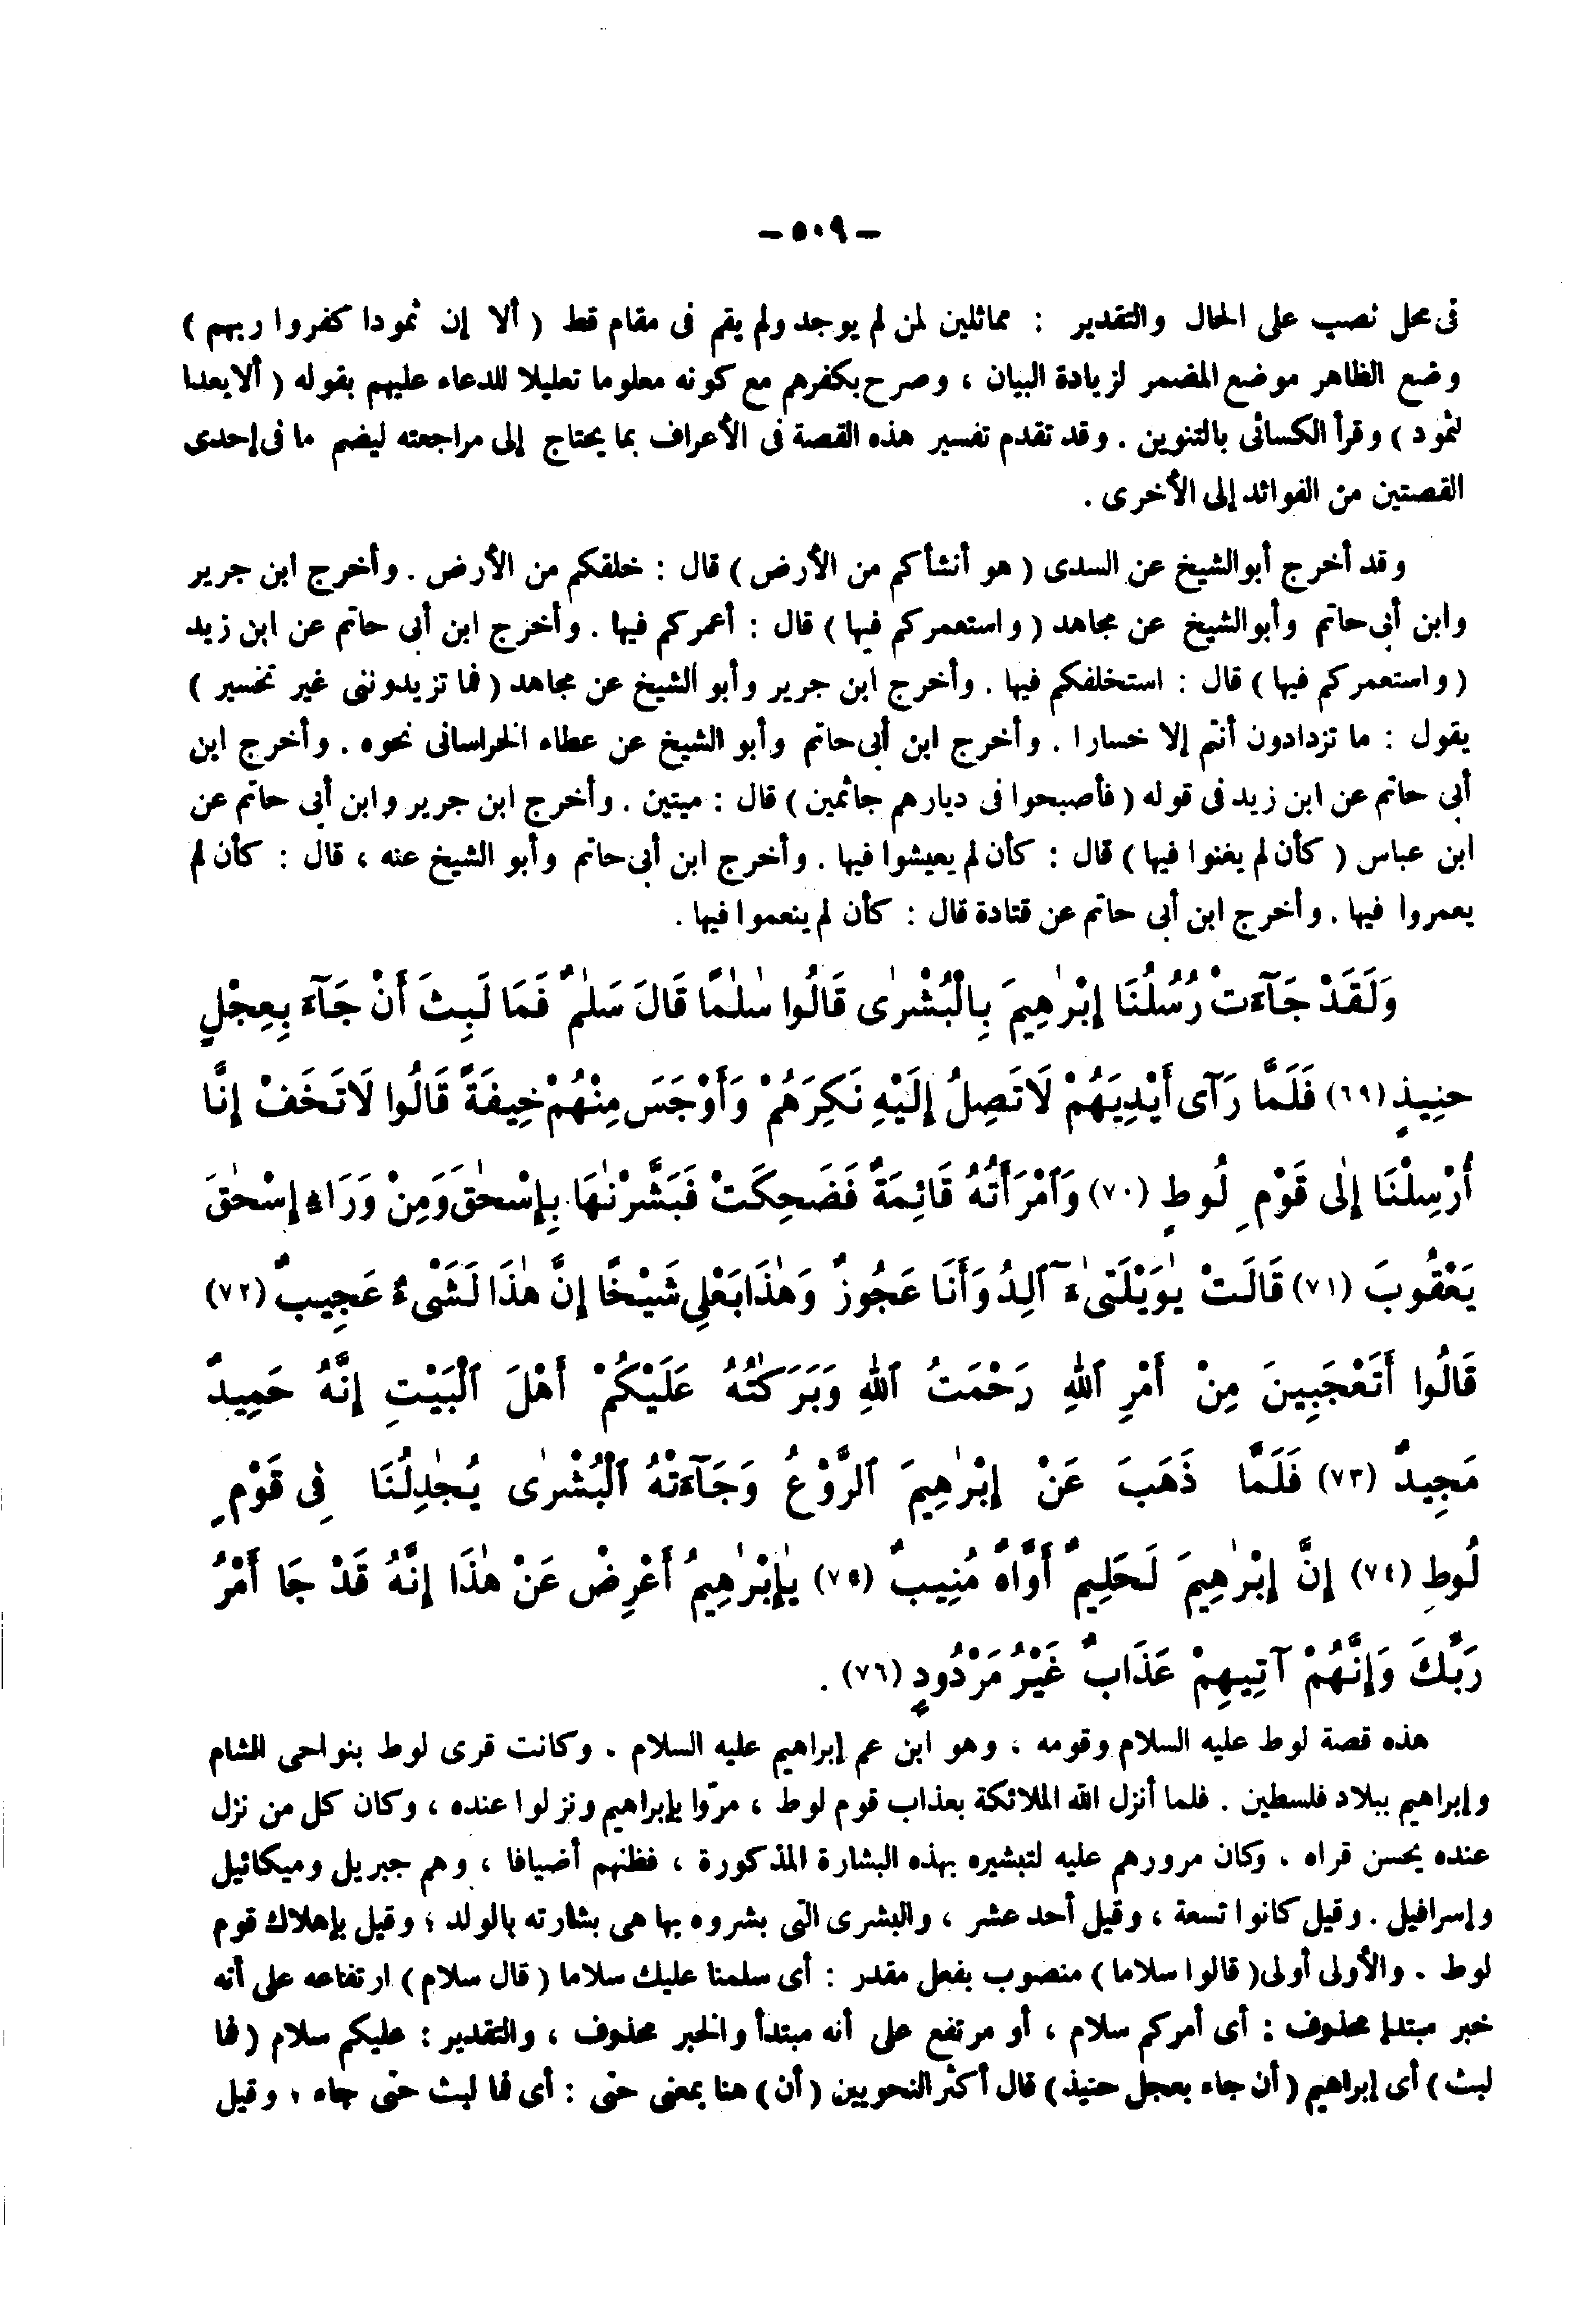 — ٥٠٩ —
فى محل نصب على الحال والتقدير : مماثلين لمن لم يوجد ولم يقم فى مقام قط ( ألا إن ثمودا كفروا ربهم )
وضع الظاهر موضع المضمر لزيادة البيان ، وصرح بكفرهم مع كونه معلوما تعليلا للدعاء عليهم بقوله ( ألا بعدا
لثمود ) وقرأ الكسائى بالتنوين . وقد تقدم تفسير هذه القصة فى الأعراف بما يحتاج إلى مراجعته ليضم ما فى إحدى
القصتين من الفوائد إلى الأخرى .
وقد أخرج أبو الشيخ عن السدى ( هو أنشأكم من الأرض ) قال : خلقكم من الأرض . وأخرج ابن جرير
وابن أبى حاتم وأبو الشيخ عن مجاهد ( واستعمركم فيها ) قال : أعمركم فيها . وأخرج ابن أبى حاتم عن ابن زيد
( واستعمركم فيها ) قال : استخلفكم فيها . وأخرج ابن جرير وأبو الشيخ عن مجاهد ( فما تزيدوننى غير تخسير )
يقول : ما تزدادون أنتم إلا خسارا . وأخرج ابن أبى حاتم وأبو الشيخ عن عطاء الخراسانى نحوه . وأخرج ابن
أبى حاتم عن ابن زيد فى قوله ( فأصبحوا فى ديارهم جاثمين ) قال : ميتين . وأخرج ابن جرير وابن أبى حاتم عن
ابن عباس ( كأن لم يغنوا فيها ) قال : كأن لم يعيشوا فيها . وأخرج ابن أبى حاتم وأبو الشيخ عنه ، قال : كأن لم
يعمروا فيها . وأخرج ابن أبى حاتم عن قتادة قال : كأن لم ينعموا فيها .
وَلَقَدْ جَآءَتْ رُسُلُنَا إِبْرٰهِيمَ بِالْبُشْرٰى قَالُوا سَلٰمًا قَالَ سَلٰمٌ فَمَا لَبِثَ أَنْ جَآءَ بِعِجْلٍ
حَنِيذٍ (٦٩) فَلَمَّا رَآى أَيْدِيَهُمْ لَا تَصِلُ إِلَيْهِ نَكِرَهُمْ وَأَوْجَسَ مِنْهُمْ خِيفَةً قَالُوا لَا تَخَفْ إِنَّا
أُرْسِلْنَا إِلٰى قَوْمِ لُوطٍ (٧٠) وَٱمْرَأَتُهُ قَائِمَةٌ فَضَحِكَتْ فَبَشَّرْنٰهَا بِإِسْحٰقَ وَمِنْ وَرَاءِ إِسْحٰقَ
يَعْقُوبَ (٧١) قَالَتْ يٰوَيْلَتَىٰ ءَآلِدُ وَأَنَا عَجُوزٌ وَهٰذَا بَعْلِى شَيْخًا إِنَّ هٰذَا لَشَىْءٌ عَجِيبٌ (٧٢)
قَالُوا أَتَعْجَبِينَ مِنْ أَمْرِ ٱللهِ رَحْمَتُ ٱللهِ وَبَرَكٰتُهُ عَلَيْكُمْ أَهْلَ ٱلْبَيْتِ إِنَّهُ حَمِيدٌ
مَجِيدٌ (٧٣) فَلَمَّا ذَهَبَ عَنْ إِبْرٰهِيمَ ٱلرَّوْعُ وَجَآءَتْهُ ٱلْبُشْرٰى يُجٰدِلُنَا فِى قَوْمِ
لُوطٍ (٧٤) إِنَّ إِبْرٰهِيمَ لَحَلِيمٌ أَوَّاهٌ مُنِيبٌ (٧٥) يٰإِبْرٰهِيمُ أَعْرِضْ عَنْ هٰذَا إِنَّهُ قَدْ جَا أَمْرُ
رَبِّكَ وَإِنَّهُمْ آتِيهِمْ عَذَابٌ غَيْرُ مَرْدُودٍ (٧٦) .
هذه قصة لوط عليه السلام وقومه ، وهو ابن عم إبراهيم عليه السلام . وكانت قرى لوط بنواحى الشام
وإبراهيم ببلاد فلسطين . فلما أنزل الله الملائكة بعذاب قوم لوط ، مرّوا بإبراهيم ونزلوا عنده ، وكان كل من نزل
عنده يحسن قراه . وكان مرورهم عليه لتبشيره بهذه البشارة المذكورة ، فظنهم أضيافا ، وهم جبريل وميكائيل
وإسرافيل . وقيل كانوا تسعة ، وقيل أحد عشر ، والبشرى التى بشروه بها هى بشارته بالولد ؛ وقيل بإهلاك قوم
لوط . والأولى أولى ( قالوا سلاما ) منصوب بفعل مقدر : أى سلمنا عليك سلاما ( قال سلام ) ارتفاعه على أنه
خبر مبتدإ محذوف : أى أمركم سلام ، أو مرتفع على أنه مبتدأ والخبر محذوف ، والتقدير : عليكم سلام ( فما
لبث ) أى إبراهيم ( أن جاء بعجل حنيذ ) قال أكثر النحويين ( أن ) هنا بمعنى حتى : أى فما لبث حتى جاء ، وقيل